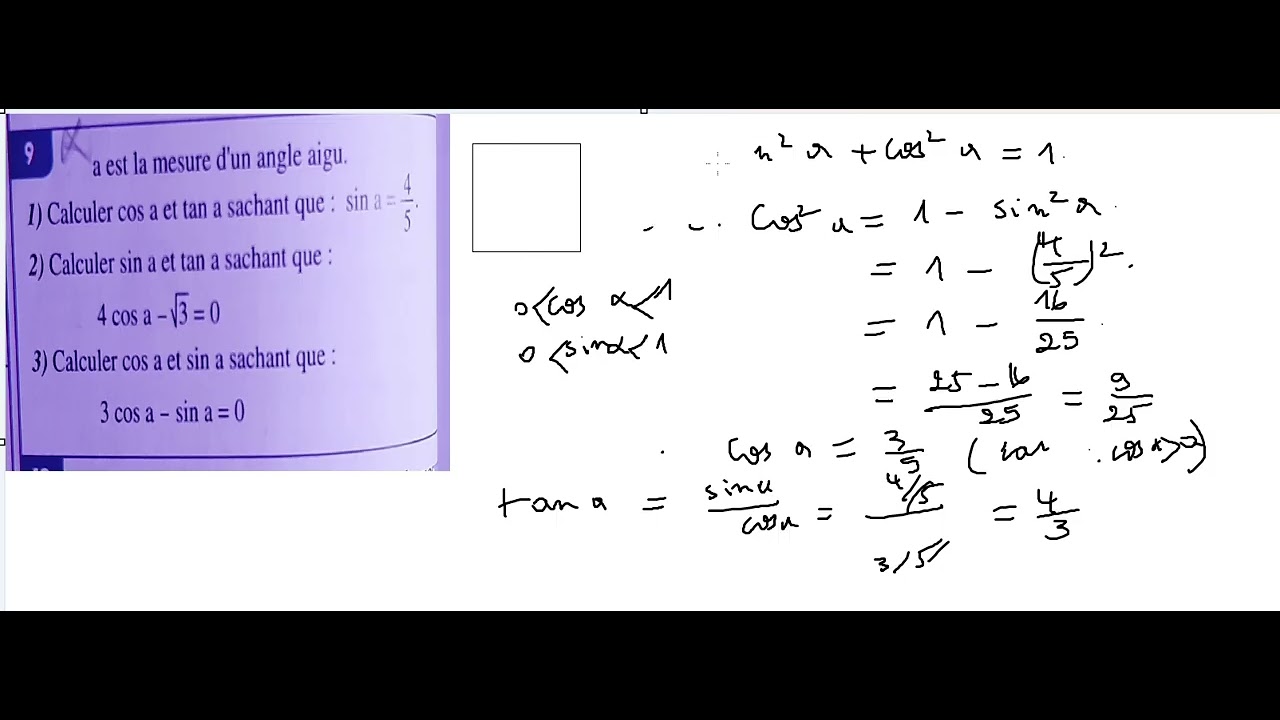 9
a est la mesure d'un angle aigu.
1) Calculer cos a et tan a sachant que : sin a = 4/5.
2) Calculer sin a et tan a sachant que :
4 cos a − √3 = 0
3) Calculer cos a et sin a sachant que :
3 cos a − sin a = 0
0 < cos α < 1
0 < sin α < 1
n² a + cos² a = 1.
cos² a = 1 − sin² a.
= 1 − (4/5)².
= 1 − 16/25.
= 25 − 16/25 = 9/25
cos a = 3/5 (car cos α > 0)
tan a = sin a/cos a = 4/5/3/5 = 4/3